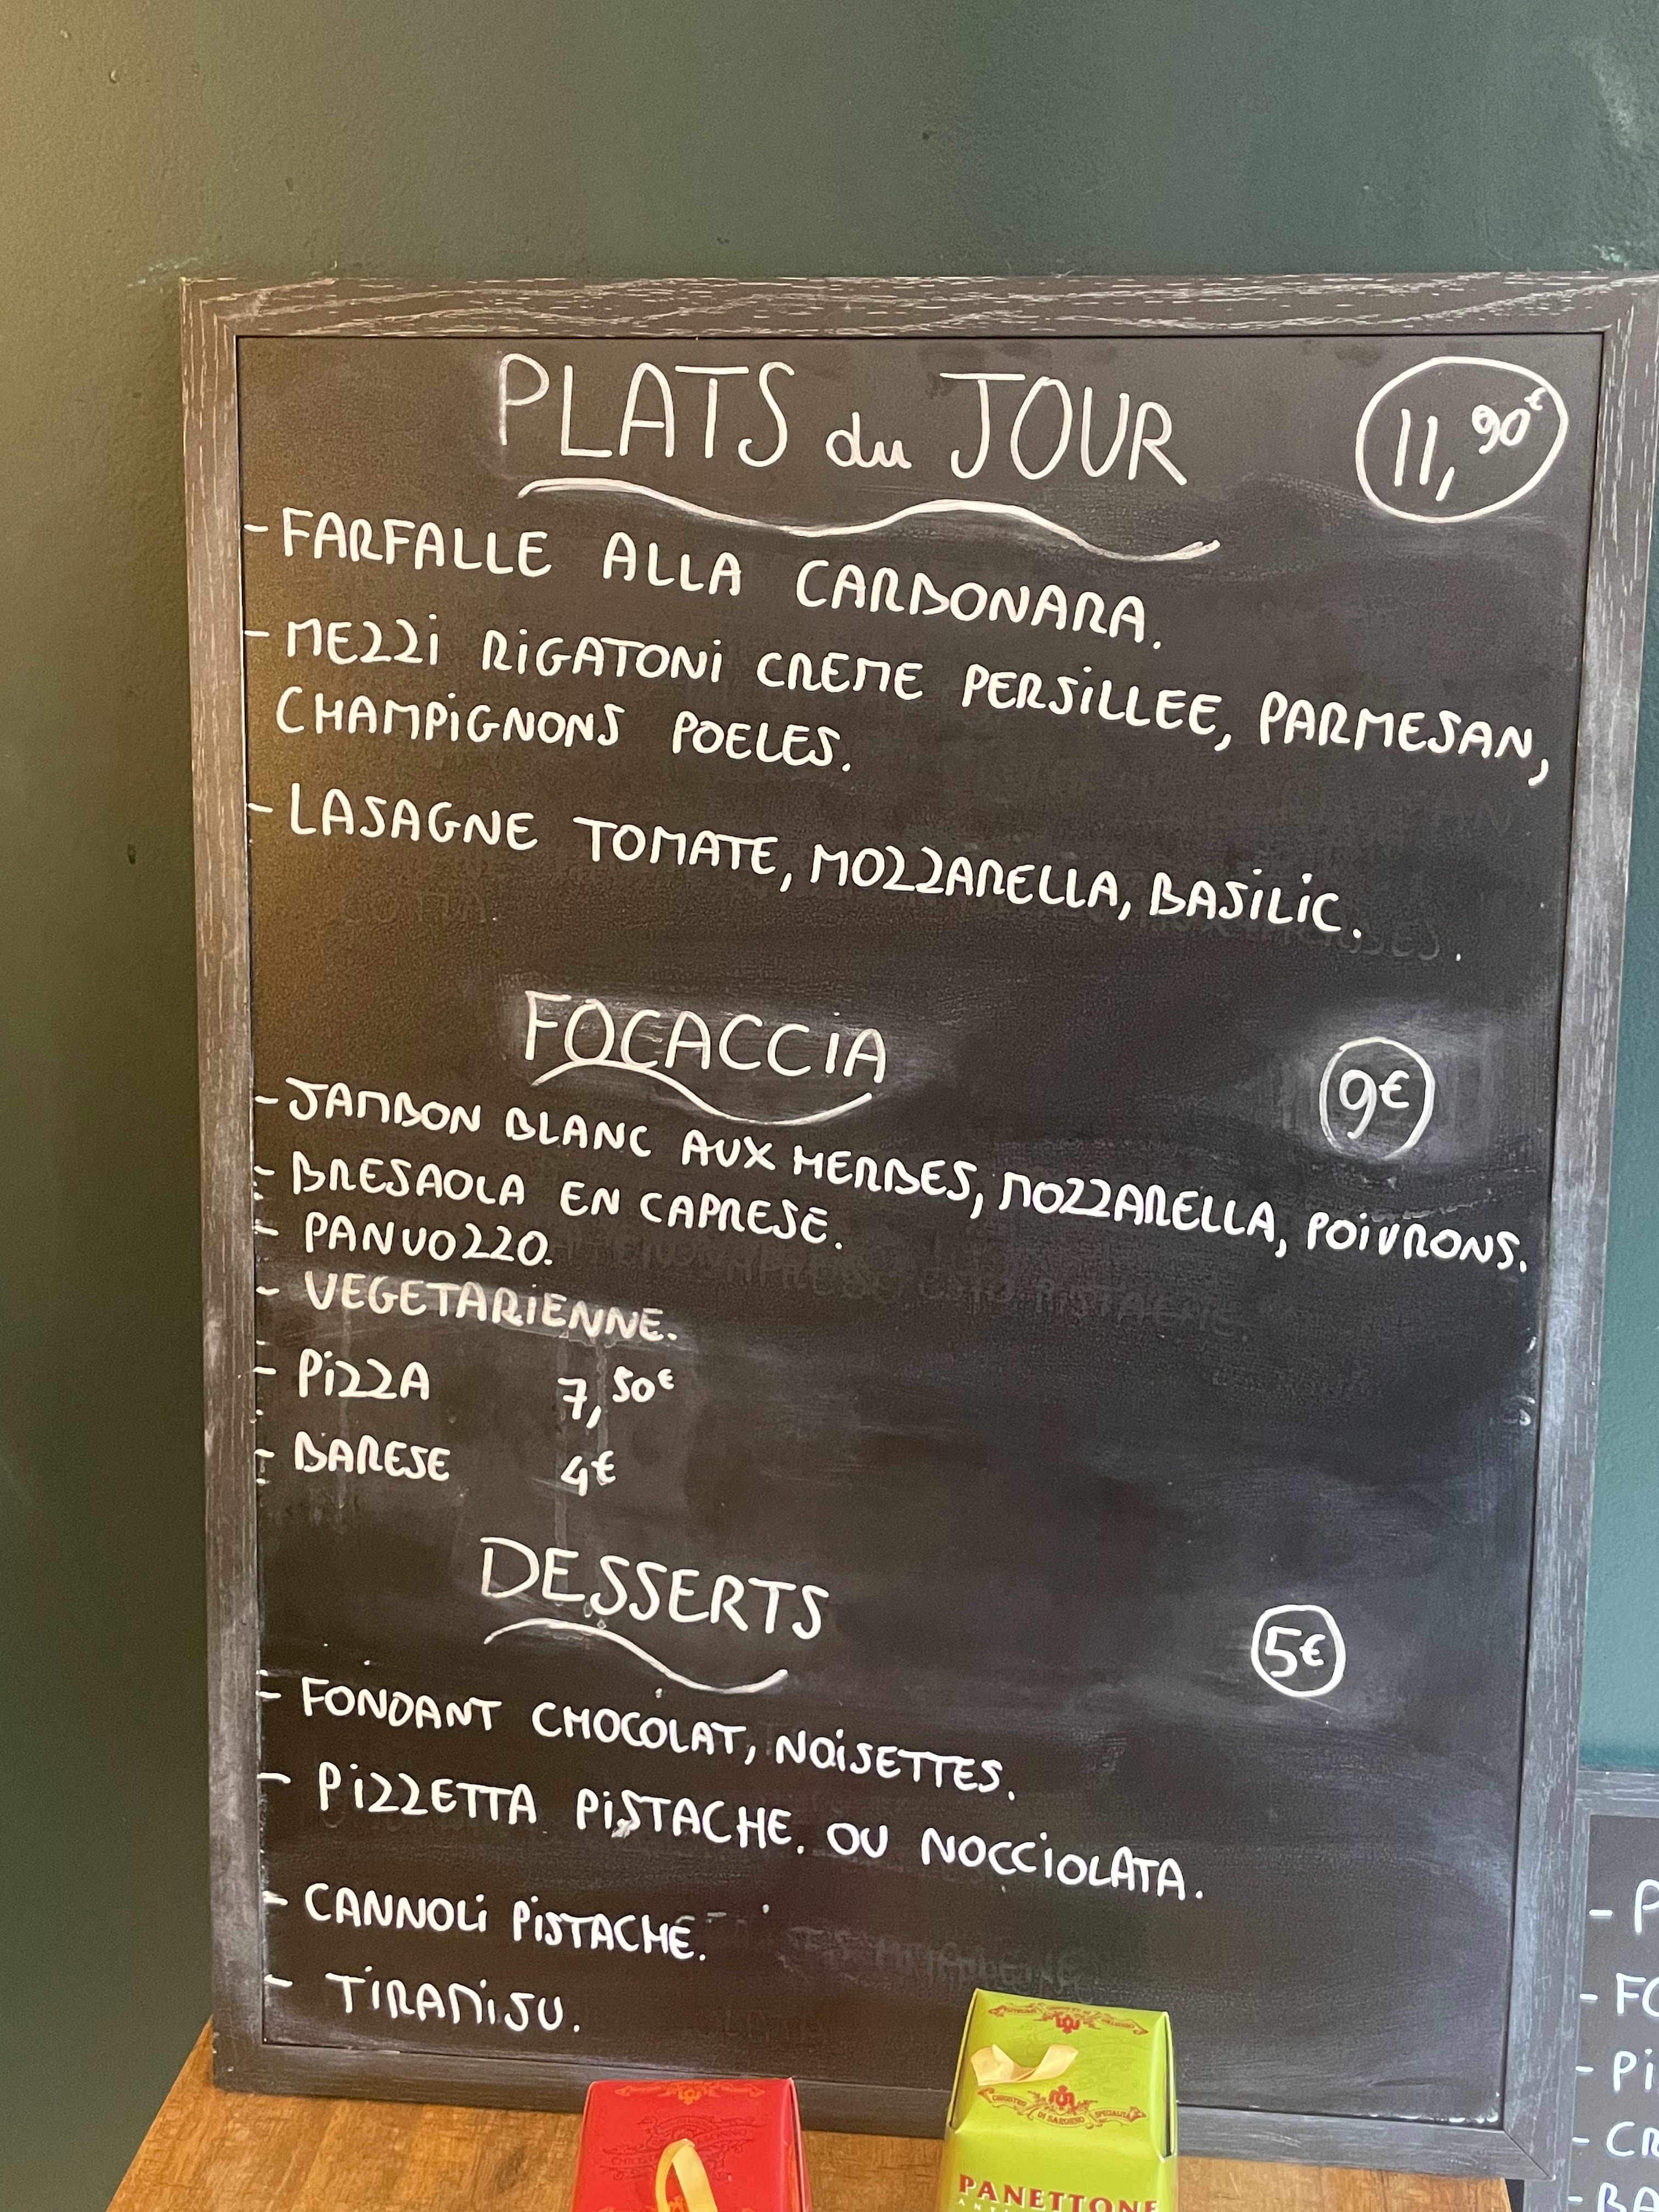 PLATS du JOUR 11,90€
- FARFALLE ALLA CARBONARA.
- MEZZi RiGATONi CREME PERSiLLEE, PARMESAN,
CHAMPiGNONS POELES.
- LASAGNE TOMATE, MOZZARELLA, BASiLiC.
FOCACCiA 9€
- JAMBON BLANC AUX HERBES, MOZZARELLA, POiVRONS.
- BRESAOLA EN CAPRESE.
- PANUOZZO.
- VEGETARiENNE.
- PiZZA 7,50€
- BARESE 4€
DESSERTS 5€
- FONDANT CHOCOLAT, NOiSETTES.
- PiZZETTA PiSTACHE. OU NOCCiOLATA.
- CANNOLi PiSTACHE.
- TiRAMiSU.
- P
- FO
- Pi
- CR
- BA
DI SARONNO
PANETTONE